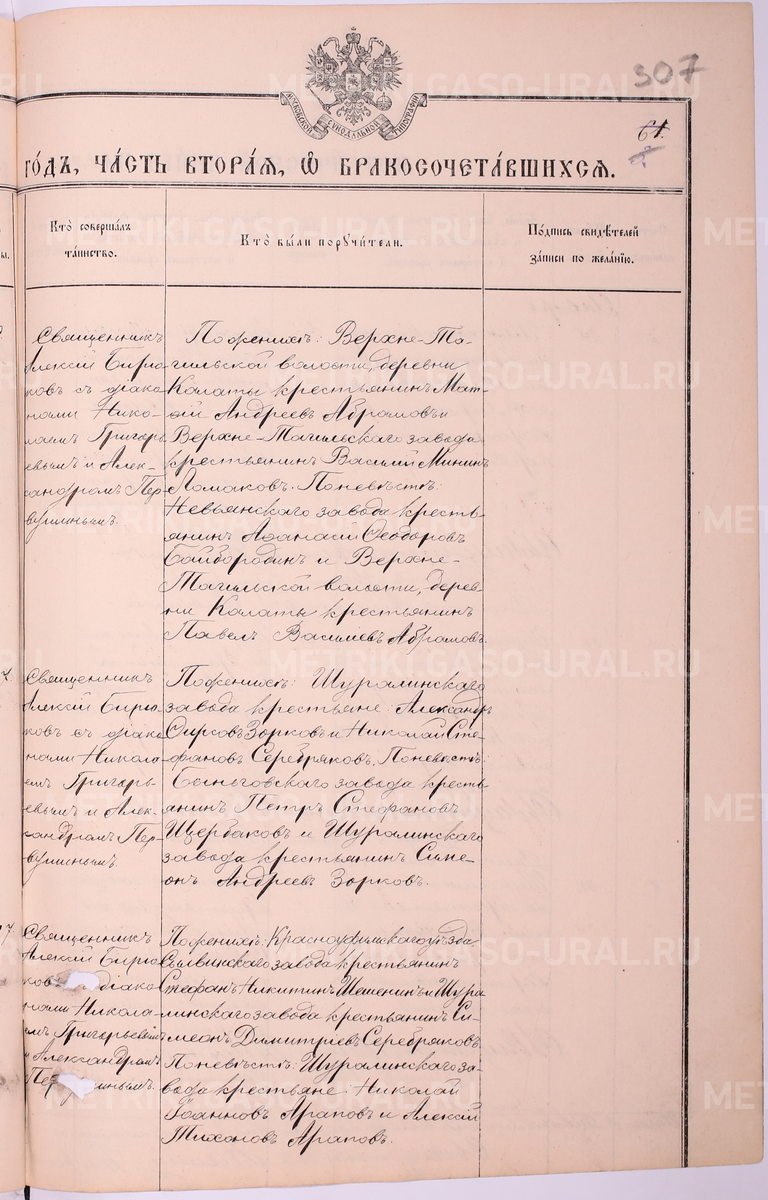 307
МОСКОВСКОЙ СѴНОДАЛЬНОЙ ТИПОГРАФІИ
61.
ГО́ДЪ, ЧА́СТЬ ВТОРА́Я, Ѽ БРАКОСОЧЕТА́ВШИХСЯ.
Кто̀ соверша́лъ
та́инство.
Кто̀ бы́ли порꙋчи́тели.
По́дпись свидѣ́телей
за́писи по жела́нїю.
Священникъ
Алексій Бирю-
ковъ съ діако-
нами Нико-
лаемъ Григорь-
евымъ и Алек-
сандромъ Пер-
вушинымъ.
По женихѣ: Верхне-Та-
гильской волости, деревни
Калаты крестьянинъ Мат-
ѳій Андреевъ Абрамовъ и
Верхне-Тагильскаго завода
крестьянинъ Василій Мининъ
Ломаковъ. По невѣстѣ:
Невьянскаго завода кресть-
янинъ Аѳанасій Ѳеодоровъ
Байбородинъ и Верхне-
Тагильской волости, дерев-
ни Калаты крестьянинъ
Павелъ Васильевъ Абрамовъ.
Священникъ
Алексій Бирю-
ковъ съ діако-
нами Никола-
емъ Григорь-
евымъ и Алек-
сандромъ Пер-
вушинымъ.
По женихѣ: Шуралинскаго
завода крестьяне: Александръ
Сирсовъ Зорковъ и Николай Сте-
фановъ Серебряковъ. По невѣстѣ:
Быньговскаго завода кресть-
янинъ Петръ Стефановъ
Щербаковъ и Шуралинскаго
завода крестьянинъ Симе-
онъ Андреевъ Зорковъ.
7
Священникъ
Алексій Бирю-
ковъ діако-
нами Никола-
емъ Григорьевымъ
и Александромъ
Пер шинымъ.
По женихѣ: Красноуфимскаго уѣзда
Сылвинскаго завода крестьянинъ
Стефанъ Никитинъ Шешенинъ и Шура-
линскаго завода крестьянинъ Си-
меонъ Димитріевъ Серебряковъ
По невѣстѣ: Шуралинскаго за-
вода крестьяне: Николай
Іоанновъ Араповъ и Алексій
Тихоновъ Араповъ.
METRIKI.GASO-URAL.RU